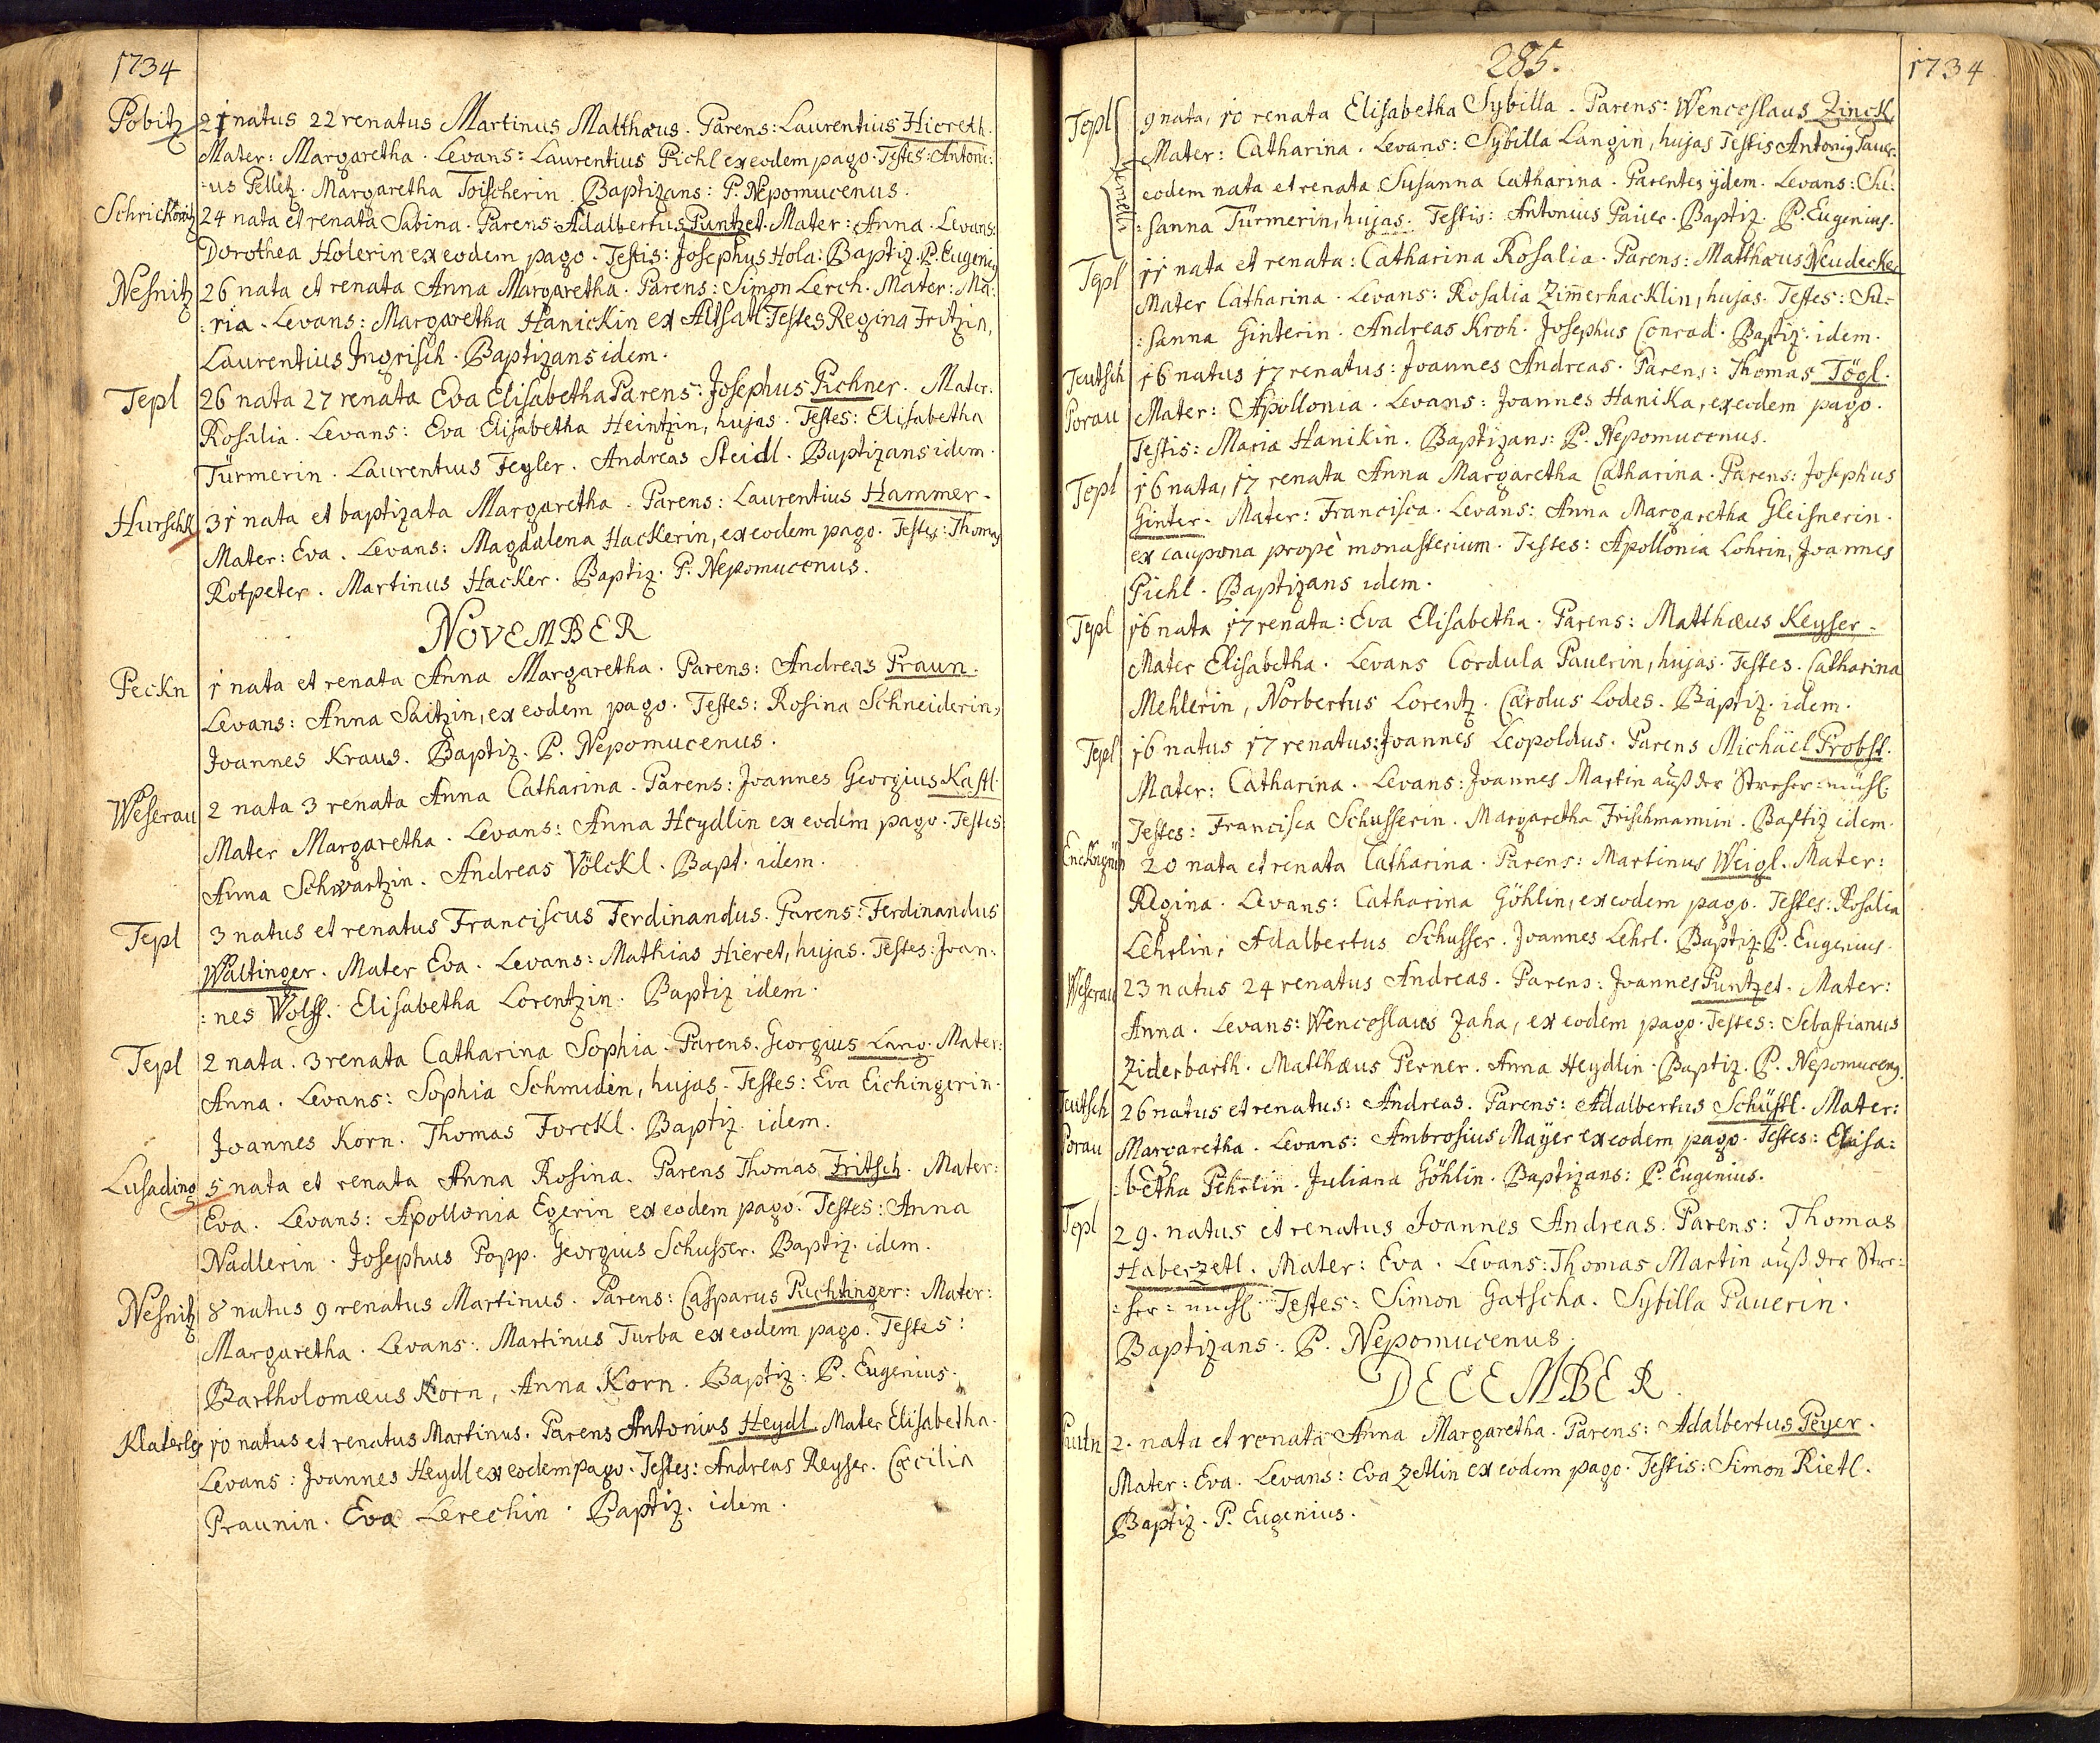 1734
Pobitz 21 natus 22 renatus Martinus Matthæus. Parens: Laurentius Hiereth.
Mater: Margaretha. Levans: Laurentius Pichl ex eodem pago. Testes: Antoni:
:us Pelletz. Margaretha Toischerin. Baptizans: P. Nepomucenus.
Schrickowitz 24 nata et renata Sabina. Parens: Adalbertus Puntzet. Mater: Anna. Levans:
Dorothea Holerin ex eodem pago. Testis: Josephus Hola: Baptiz. P. Eugenig
Nesnitz 26 nata et renata Anna Margaretha. Parens: Simon Lerch. Mater: Ma:
:ria. Levans: Margaretha Hanickin ex Altsatl Testes Regina Fritzin,
Laurentius Ingrisch. Baptizans idem.
Tepl 26 nata 27 renata Eva Elisabetha Parens: Josephus Pichner. Mater:
Rosalia. Levans: Eva Elisabetha Heintzin, hujas. Testes: Elisabetha
Türmerin. Laurentius Fegler. Andreas Steidl. Baptizans idem.
Hurschk 31 nata et baptizata Margaretha. Parens: Laurentius Hammer.
Mater: Eva. Levans: Magdalena Hackerin, ex eodem pago. Testes: Thomas
Rotpeter. Martinus Hacker. Baptiz. P. Nepomucenus.
NOVEMBER
Peckn 1 nata et renata Anna Margaretha. Parens: Andreas Praun.
Levans: Anna Saitzin, ex eodem pago. Testes: Rosina Schneiderin,
Joannes Kraus. Baptiz. P. Nepomucenus.
Weserau 2 nata 3 renata Anna Catharina. Parens: Joannes Georgius Kastl.
Mater Margaretha. Levans: Anna Heydlin ex eodem pago. Testes
Anna Schwartzin. Andreas Völckl. Bapt. idem.
Tepl 3 natus et renatus Franciscus Ferdinandus. Parens: Ferdinandus
Waltinger. Mater Eva. Levans: Mathias Hieret, hujas. Testes: Joan:
:nes Wolff. Elisabetha Lorentzin. Baptiz idem.
Tepl 2 nata. 3 renata Catharina Sophia. Parens. Georgius Lang. Mater:
Anna. Levans: Sophia Schmidin, hujas. Testes: Eva Eichingerin.
Joannes Korn. Thomas Forckl. Baptiz. idem.
Lusading 5 nata et renata Anna Rosina. Parens Thomas Fritsch. Mater:
Eva. Levans: Apollonia Egerin ex eodem pago. Testes: Anna
Nadlerin. Josephus Popp. Georgius Schusser. Baptiz. idem.
Nesnitz 8 natus 9 renatus Martinus. Parens: Casparus Puchtinger: Mater:
Margaretha. Levans: Martinus Turba ex eodem pago. Testes:
Bartholomæus Korn, Anna Korn. Baptiz: P. Eugenius.
Klaterlg 10 natus et renatus Martinus. Parens Antonius Heydl. Mater Elisabetha.
Levans: Joannes Heydl ex eodem pago. Testes: Andreas Reyser. Cæcilia
Praunin. Eva Lerechin. Baptiz. idem.
285. 1734
Tepl 9 nata, 10 renata Elisabetha Sybilla. Parens: Wenceslaus Zinck.
Mater: Catharina. Levans: Sybilla Langin, hujas Testis Antonig Pauer.
Gemelli eodem nata et renata Susanna Catharina. Parentes ijdem. Levans: Su:
:sanna Türmerin, hujas. Testis: Antonius Pauer. Baptiz. P. Eugenius.
Tepl 11 nata et renata: Catharina Rosalia. Parens: Matthæus Neudecker
Mater Catharina. Levans: Rosalia Zimerhacklin, hujas. Testes: Su:
:sanna Ginterin. Andreas Kroh. Josephus Conrad. Baptiz. idem.
Teutsch Porau 16 natus 17 renatus: Joannes Andreas. Parens: Thomas Tögl.
Mater: Apollonia. Levans: Joannes Hanika, ex eodem pago.
Testis: Maria Hanikin. Baptizans: P. Nepomucenus.
Tepl 16 nata, 17 renata Anna Margaretha Catharina. Parens: Josephus
Ginter. Mater: Francisca. Levans: Anna Margaretha Gleisnerin.
ex caupona propè monasterium. Testes: Apollonia Lohrin, Joannes
Pichl. Baptizans idem.
Tepl 16 nata 17 renata: Eva Elisabetha. Parens: Matthæus Keyser.
Mater Elisabetha. Levans Cordula Pauerin, hujas. Testes. Catharina
Mehlerin, Norbertus Lorentz. Carolus Lodes. Baptiz. idem.
Tepl 16 natus 17 renatus: Joannes Leopoldus. Parens Michäel Probst.
Mater: Catharina. Levans: Joannes Martin auß der Streser=mühl.
Testes: Francisca Schusserin. Margaretha Frischmannin. Baptiz idem.
Enckngrün 20 nata et renata Catharina. Parens: Martinus Weigl. Mater:
Regina. Levans: Catharina Göhlin, ex eodem pago. Testes: Rosalia
Lehrlin, Adalbertus Schusser. Joannes Lehrl. Baptiz: P. Eugenius.
Weserau 23 natus 24 renatus Andreas. Parens: Joannes Puntzet. Mater:
Anna. Levans: Wenceslaus Zaha, ex eodem pago. Testes: Sebastianus
Ziderbarth. Matthæus Perner. Anna Heydlin. Baptiz. P. Nepomuceng.
Teutsch Porau 26 natus et renatus: Andreas. Parens: Adalbertus Schüstl. Mater:
Margaretha. Levans: Ambrosius Mayer ex eodem pago. Testes: Elisa:
:betha Pehrlin. Juliana Göhlin. Baptizans: P. Eugenius.
Tepl 29. natus et renatus Joannes Andreas. Parens: Thomas
Haberzetl. Mater: Eva. Levans: Thomas Martin auß der Stre:
:ser=mühl. Testes: Simon Gatscha. Sybilla Pauerin.
Baptizans: P. Nepomucenus.
DECEMBER.
2. nata et renata Anna Margaretha. Parens: Adalbertus Peyer.
Mater: Eva. Levans: Eva Zetlin ex eodem pago. Testis: Simon Rietl.
Baptiz. P. Eugenius.